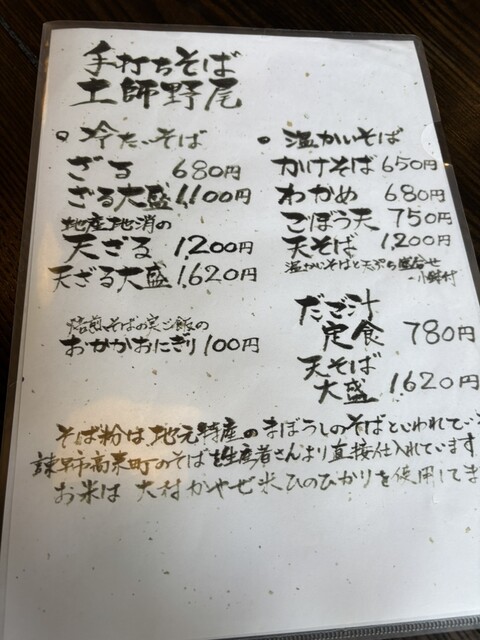 手打ちそば
土師野尾
○冷たいそば
ざる 680円
ざる大盛 1,100円
地産地消の
天ざる 1,200円
天ざる大盛 1,620円
焙煎そばの実ご飯の
おかかおにぎり 100円
○温かいそば
かけそば 650円
わかめ 680円
ごぼう天 750円
天そば 1,200円
温かいそばと天ぷら盛合せ
小鉢付
だご汁
定食 780円
天そば
大盛 1620円
そば粉は地元特産のまぼろしのそばといわれてい
諫早市高来町のそばを生産者さんより直接仕入れています
お米は大村かやぜ米ひのひかりを使用してま